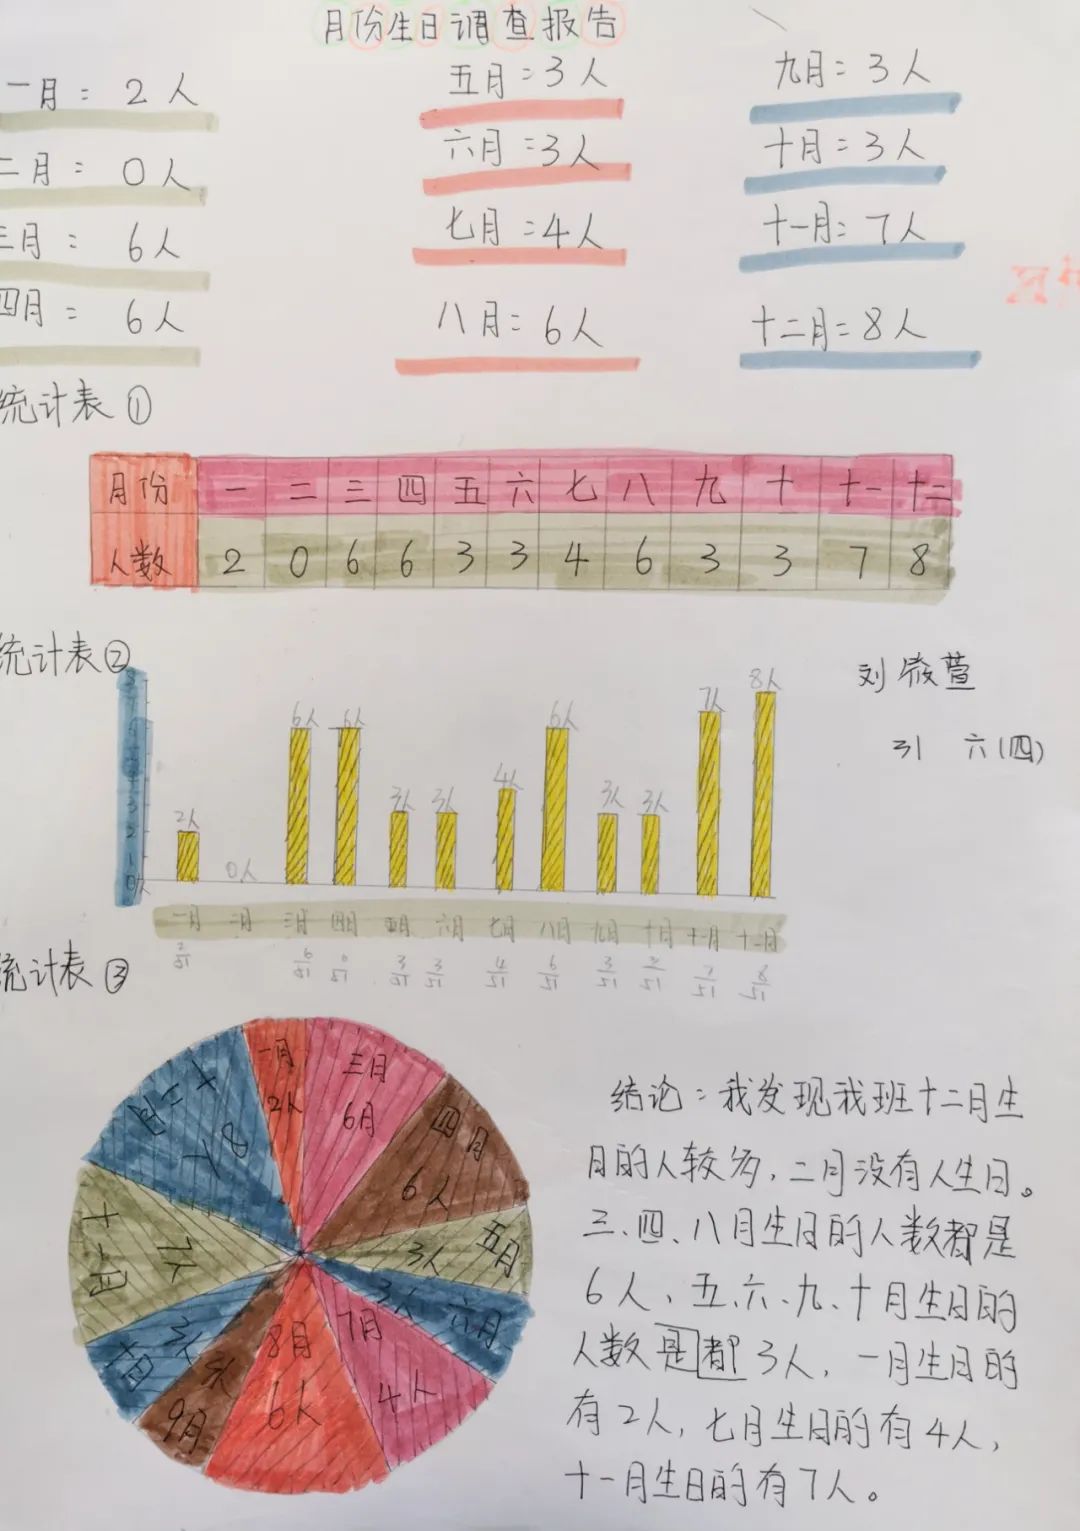 月份生日调查报告
一月: 2人
二月: 0人
三月: 6人
四月: 6人
五月:3人
六月:3人
七月:4人
八月:6人
九月:3人
十月:3人
十一月:7人
十二月:8人
统计表①
月份 一 二 三 四 五 六 七 八 九 十 十一 十二
人数 2 0 6 6 3 3 4 6 3 3 7 8
统计表②
刘 萱
31 六(四)
8
7
6
5
4
3
2
1
0
2人 0人 6人 6人 3人 3人 4人 6人 3人 3人 7人 8人
一月 二月 三月 四月 五月 六月 七月 八月 九月 十月 十一月 十二月
2/51 6/51 6/51 3/51 3/51 4/51 6/51 3/51 3/51 7/51 8/51
统计表③
一月
2人
三月
6月
四月
6人
五月
3人
六月
3人
7月
4人
8月
6人
9月
3人
十月
3人
十一月
7人
十二月
8人
结论:我发现我班十二月生
日的人较多,二月没有人生日。
三、四、八月生日的人数都是
6人、五、六、九、十月生日的
人数是都3人,一月生日的
有2人,七月生日的有4人,
十一月生日的有7人。